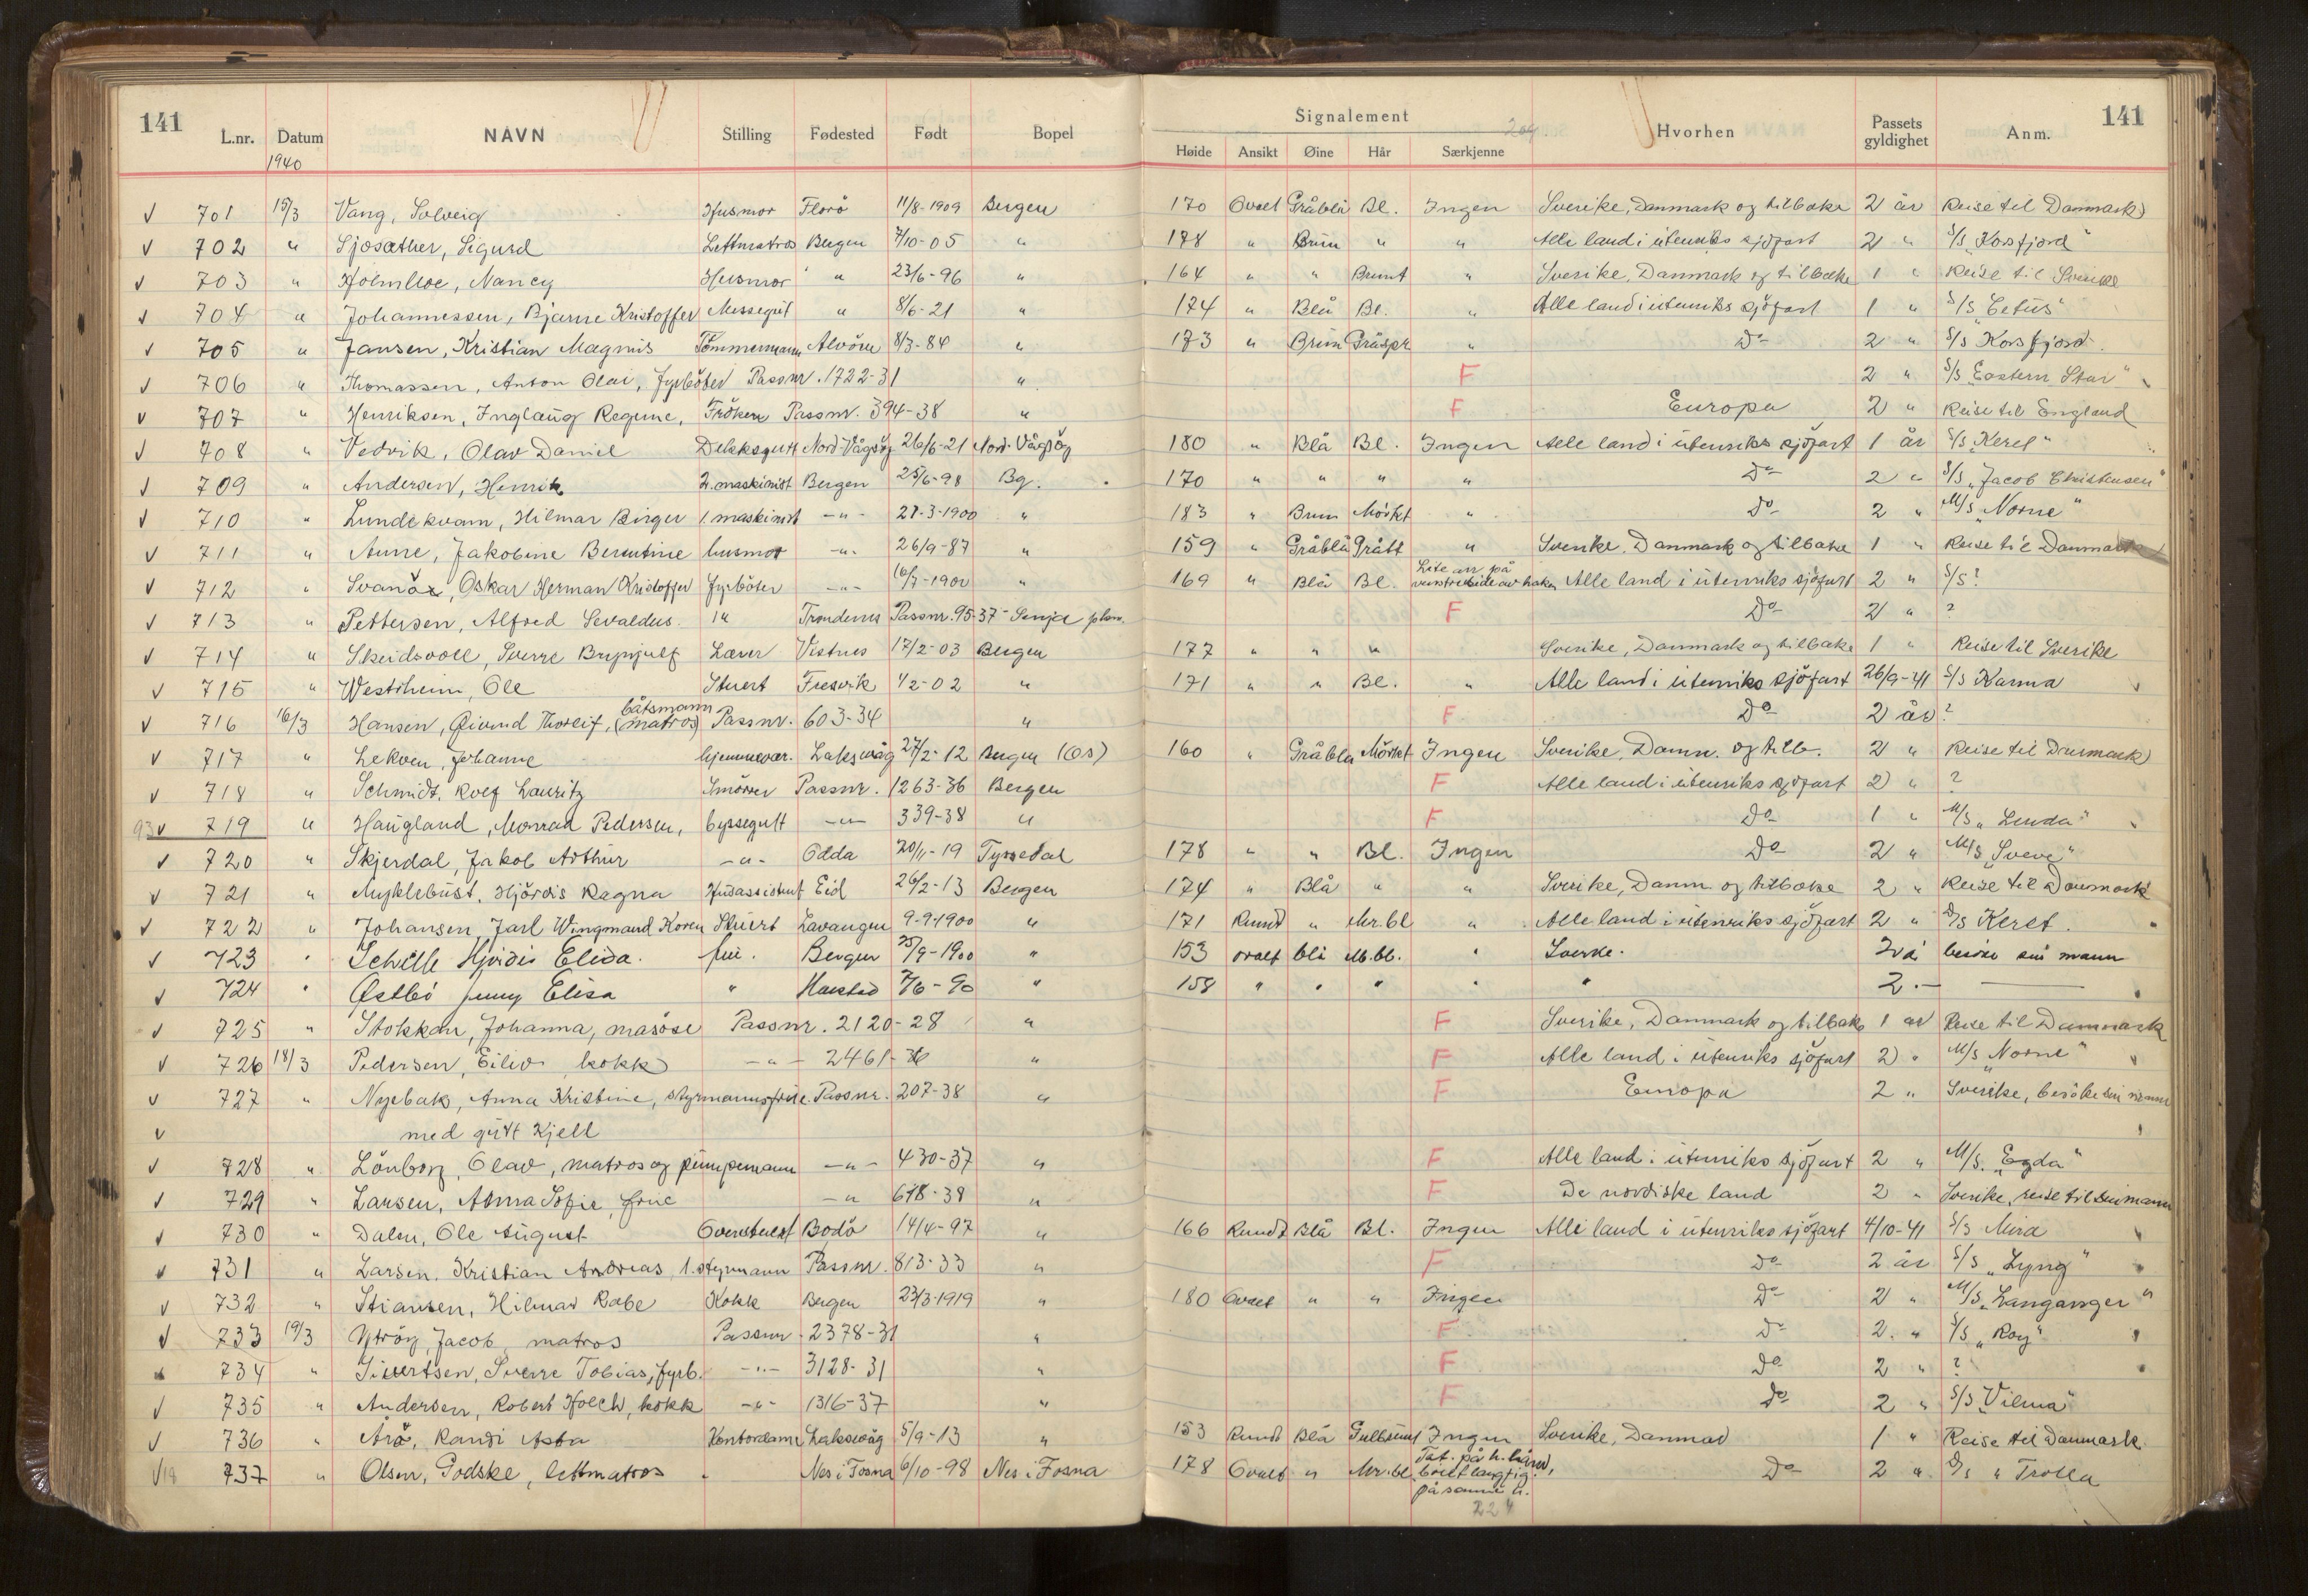 141 141
Signalement
L.nr. Datum NAVN Stilling Fødested Født Bopel Høide Ansikt Øine Hår Særkjenne Hvorhen Passets gyldighet Anm.
1940
701 15/3 Vang, Solveig Husmor Florö 11/8-1909 Bergen 170 Ovalt Gråblå Bl. Ingen Sverike, Danmark og tilbake 2 år Reise til Danmark
702 " Sjosæther, Sigurd Lettmatros Bergen 7/10-05 " 178 " Brun " " Alle land i utenriks sjöfart 2 " S/S "Korsfjord"
703 " Nancy Husmor " 23/6-96 " 164 " " Brunt " Sverike, Danmark og tilbake 1 " Reise til Sverike
704 " Johannessen, Bjarne Kristoffer Messegut " 8/6-21 " 174 " Blå Bl. " Alle land i utenriks sjöfart 1 " S/S "Cetus"
705 " Jansen, Kristian Magnus Tömmermann Alvöen 8/3-84 " 173 " Brun Gråspr " Do 2 " S/S "Korsfjord"
706 " Thomassen, Anton Olai, fyrböter Passnr. 1722-31 " F 2 " S/S "Eastern Star"
707 " Henriksen, Inglaug Regine, Fröken Passnr. 394-38 " F Europa 2 " Reise til England
708 " Vedvik, Olav Daniel Dekksgutt Nord-Vågsöy 26/6-21 Nord-Vågsöy 180 " Blå Bl. Ingen Alle land i utenriks sjöfart 1 år S/S "Keret"
709 " Andersen, Henrik 2. maskinist Bergen 25/6-98 Bg. 170 " " " " Do 2 " S/S "Jacob Christensen"
710 " Lundekvam, Hilmar Birger 1. maskinist -"- 21-3-1900 " 183 " Brun Mörket " Do 2 " M/S "Norne"
711 " Aune, Jakobine Berentine husmor -"- 26/9-87 " 159 " Gråblå Grått " Sverike, Danmark og tilbake 1 " Reise til Danmark
712 " Svanöe, Oskar Herman Kristoffer fyrböter -"- 16/7-1900 " 169 " Blå Bl. Lite arr på venstre side av haken Alle land i utenriks sjöfart 2 " S/S ?
713 " Pettersen, Alfred Sevaldus. " Trondenes Passnr. 95-37 Senja F Do 2 " ?
714 " Skeidsvoll, Sverre Brynjulf Lærer Vistnes 17/2-03 Bergen 177 " " " Sverike, Danmark og tilbake 1 " Reise til Sverike
715 " Westrheim, Ole Stuert Fresvik 1/2-02 " 171 " " Bl. " Alle land i utenriks sjöfart 26/9-41 S/S Karma
716 16/3 Hansen, Öivind Thorleif, båtsmann (matros) Passnr. 603-34 " F Do 2 år ?
717 " Lekven, Johanne hjemmevær. Laksevåg 27/2-12 Bergen (Os) 160 " Gråblå Mörket Ingen Sverike, Danm. og tilb. 2 " Reise til Danmark
718 " Schmidt, Rolf Lauritz Smörer Passnr. 1263-36 Bergen F Alle land i utenriks sjöfart 2 " ?
93 719 " Haugland, Monrad Pedersen, byssegutt -"- 339-38 " F Do 1 " M/S "Linda"
720 " Skjerdal, Jakob Arthur -"- Odda 20/11-19 Tyssedal 178 " " Bl. Ingen Do 2 " M/S "Sveve"
721 " Myklebust, Hjördis Ragna Husassistent Eid 26/2-13 Bergen 174 " Blå " " Sverike, Danm og tilbake 2 " Reise til Danmark
722 " Johansen, Jarl Wingmand Koren Stuert Lavangen 9-9-1900 " 171 Rundt " Mr.bl " Alle land i utenriks sjöfart 2 " D/S Keret.
723 " Hjördis Elida. frue. Bergen 25/9-1900 " 153 ovalt blå M.bl. " Sverke. 2 år besöke sin mann
724 " Østbö Jenny Elisa " Harstad 7/6-90 " 158 " " " " " 2.-
725 " Stokkan, Johanna, masöse Passnr. 2120-28 " F Sverike, Danmark og tilbake 1 år Reise til Danmark
726 18/3 Pedersen, Eiliv kokk -"- 2461- " F Alle land i utenriks sjöfart 2 " M/S "Norne"
727 " Nyebak, Anna Kristine, styrmannsfrue. Passnr. 207-38 " F Europa 2 " Sverike, besöke sin mann
med gutt Kjell
728 " Lönborg, Olav, matros og pumpemann -"- 430-37 " F Alle land i utenriks sjöfart 2 " M/S. "Egda"
729 " Larsen, Anna Sofie, frue -"- 618-38 " F De nordiske land 2 " Sverike, reise til sin mann
730 " Dalen, Ole August Overstuert Bodö 14/4-97 " 166 Rundt Blå Bl. Ingen Alle land i utenriks sjöfart 4/10-41 S/S Mira
731 " Larsen, Kristian Andreas, 1. styrmann Passnr. 813-33 " F Do 2 år S/S "Lyng"
732 " Stiansen, Hilmar Rabe Kokk Bergen 23/3-1919 " 180 Ovalt " " Ingen Do 2 " M/S "Langanger"
733 19/3 Ytröy, Jacob, matros Passnr. 2378-31 " F Do 2. " S/S "Roy"
734 " Sivertsen, Sverre Tobias, fyrb. -"- 3128-31 " F Do 2 " ?
735 " Andersen, Robert Holch, kokk -"- 1316-37 " F Do 2 " S/S "Vilma"
736 " Årö, Randi Asta Kontordame Laksevåg 5/9-13 " 153 Rundt Blå Gulbrunt Ingen Sverike, Danmark 1 " Reise til Danmark
737 " Olsen, Godske, lettmatros Nes i Fosna 6/10-98 Nes i Fosna 178 Ovalt " Mr.bl. Tat. på h. hånd, på samme h. Do 2 " D/S "Trolla
224